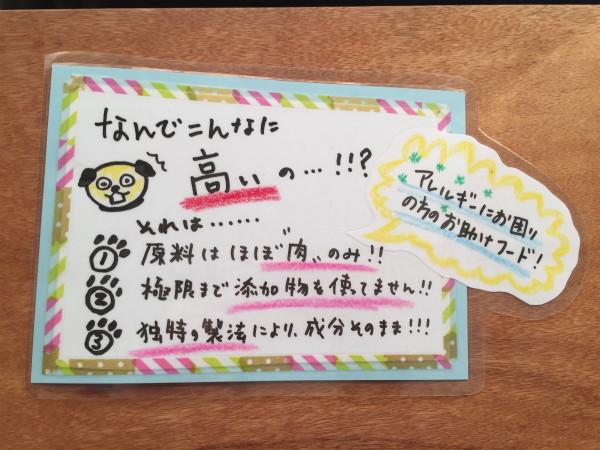 なんでこんなに
高いの…!!?
それは……
① 原料はほぼ〝肉〟のみ!!
② 極限まで添加物を使てません!!
③ 独特の製法により、成分そのまま!!!
アレルギーにお困り
の方のお助けフード!